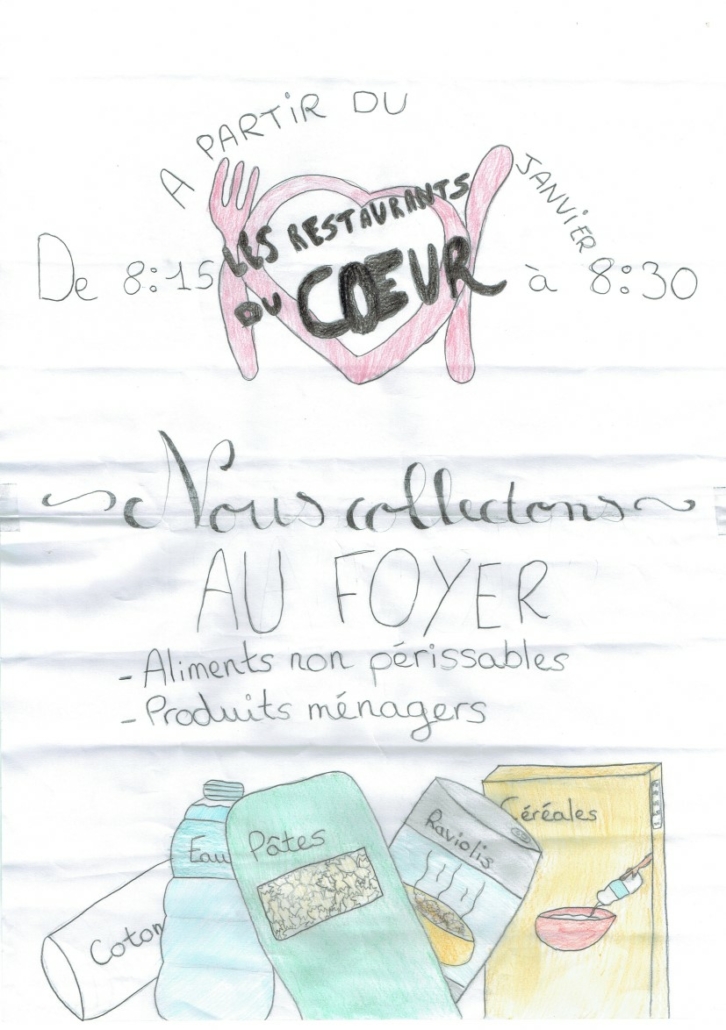 A PARTIR DU
JANVIER
De 8:15
LES RESTAURANTS
DU CŒUR
à 8:30
Nous collectons
AU FOYER
- Aliments non périssables
- Produits ménagers
Coton
Eau
Pâtes
Raviolis
Céréales